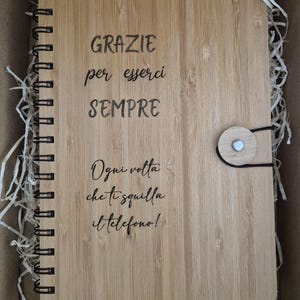 GRAZIE
per esserci
SEMPRE
Ogni volta
che ti squilla
il telefono!